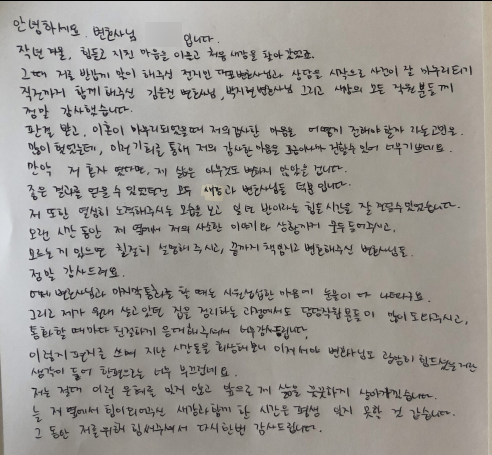 안녕하세요. 변호사님 입니다.
작년 겨울, 힘들고 지친 마음을 이끌고 처음 새강을 찾아갔었죠.
그때 저를 반갑게 맞이 해주신 전지민 대표변호사님과 상담을 시작으로 사건이 잘 마무리되기
직전까지 함께 해주신 김은진 변호사님, 박지현변호사님 그리고 새강의 모든 직원분들께
정말 감사했습니다.
판결 받고, 이혼이 마무리되었을때 저의감사한 마음을 어떻게 전해야 할지 라는고민을
많이 했었는데, 이런기회를 통해 저의 감사한마음을 조금이나마 전할수있어 너무기쁘네요.
만약 저 혼자 였다면, 제 삶은 아무것도 변하지 않았을 겁니다.
좋은 결과를 얻을 수 있었던건 모두 새강과 변호사님들 덕분입니다.
저 또한 열심히 노력해주시는 모습을 보고 일년 반이라는 힘든시간을 잘 견딜수있었습니다.
오랜 시간 동안 제 옆에서 저의 사소한 이야기와 상황까지 모두들어주시고,
모르는게 있으면 친절히 설명해 주시고, 끝까지 책임지고 변호해주신 변호사님들
정말 감사드려요.
어제 변호사님과 마지막통화를 할 때는 시원섭섭한 마음에 눈물이 다 나더라구요.
그리고 제가 원래 살고있던 집을 정리하는 과정에서도 담당직원분들이 많이도와주시고,
통화할때마다 친절하게 응대해주셔서 너무감사드립니다.
이렇게 편지를 쓰며 지난 시간들을 회상해보니 이제서야 변호사님도 굉장히 힘드셨을거란
생각이 들어 한편으로는 너무 부끄럽네요.
저는 절대 이런 은혜를 잊지 않고 앞으로 제 삶을 꿋꿋하게 살아가겠습니다.
늘 저 옆에서 힘이되어주신 새강과함께 한 시간은 평생 잊지 못할 것 같습니다.
그 동안 저를위해 힘써주셔서 다시한번 감사드립니다.